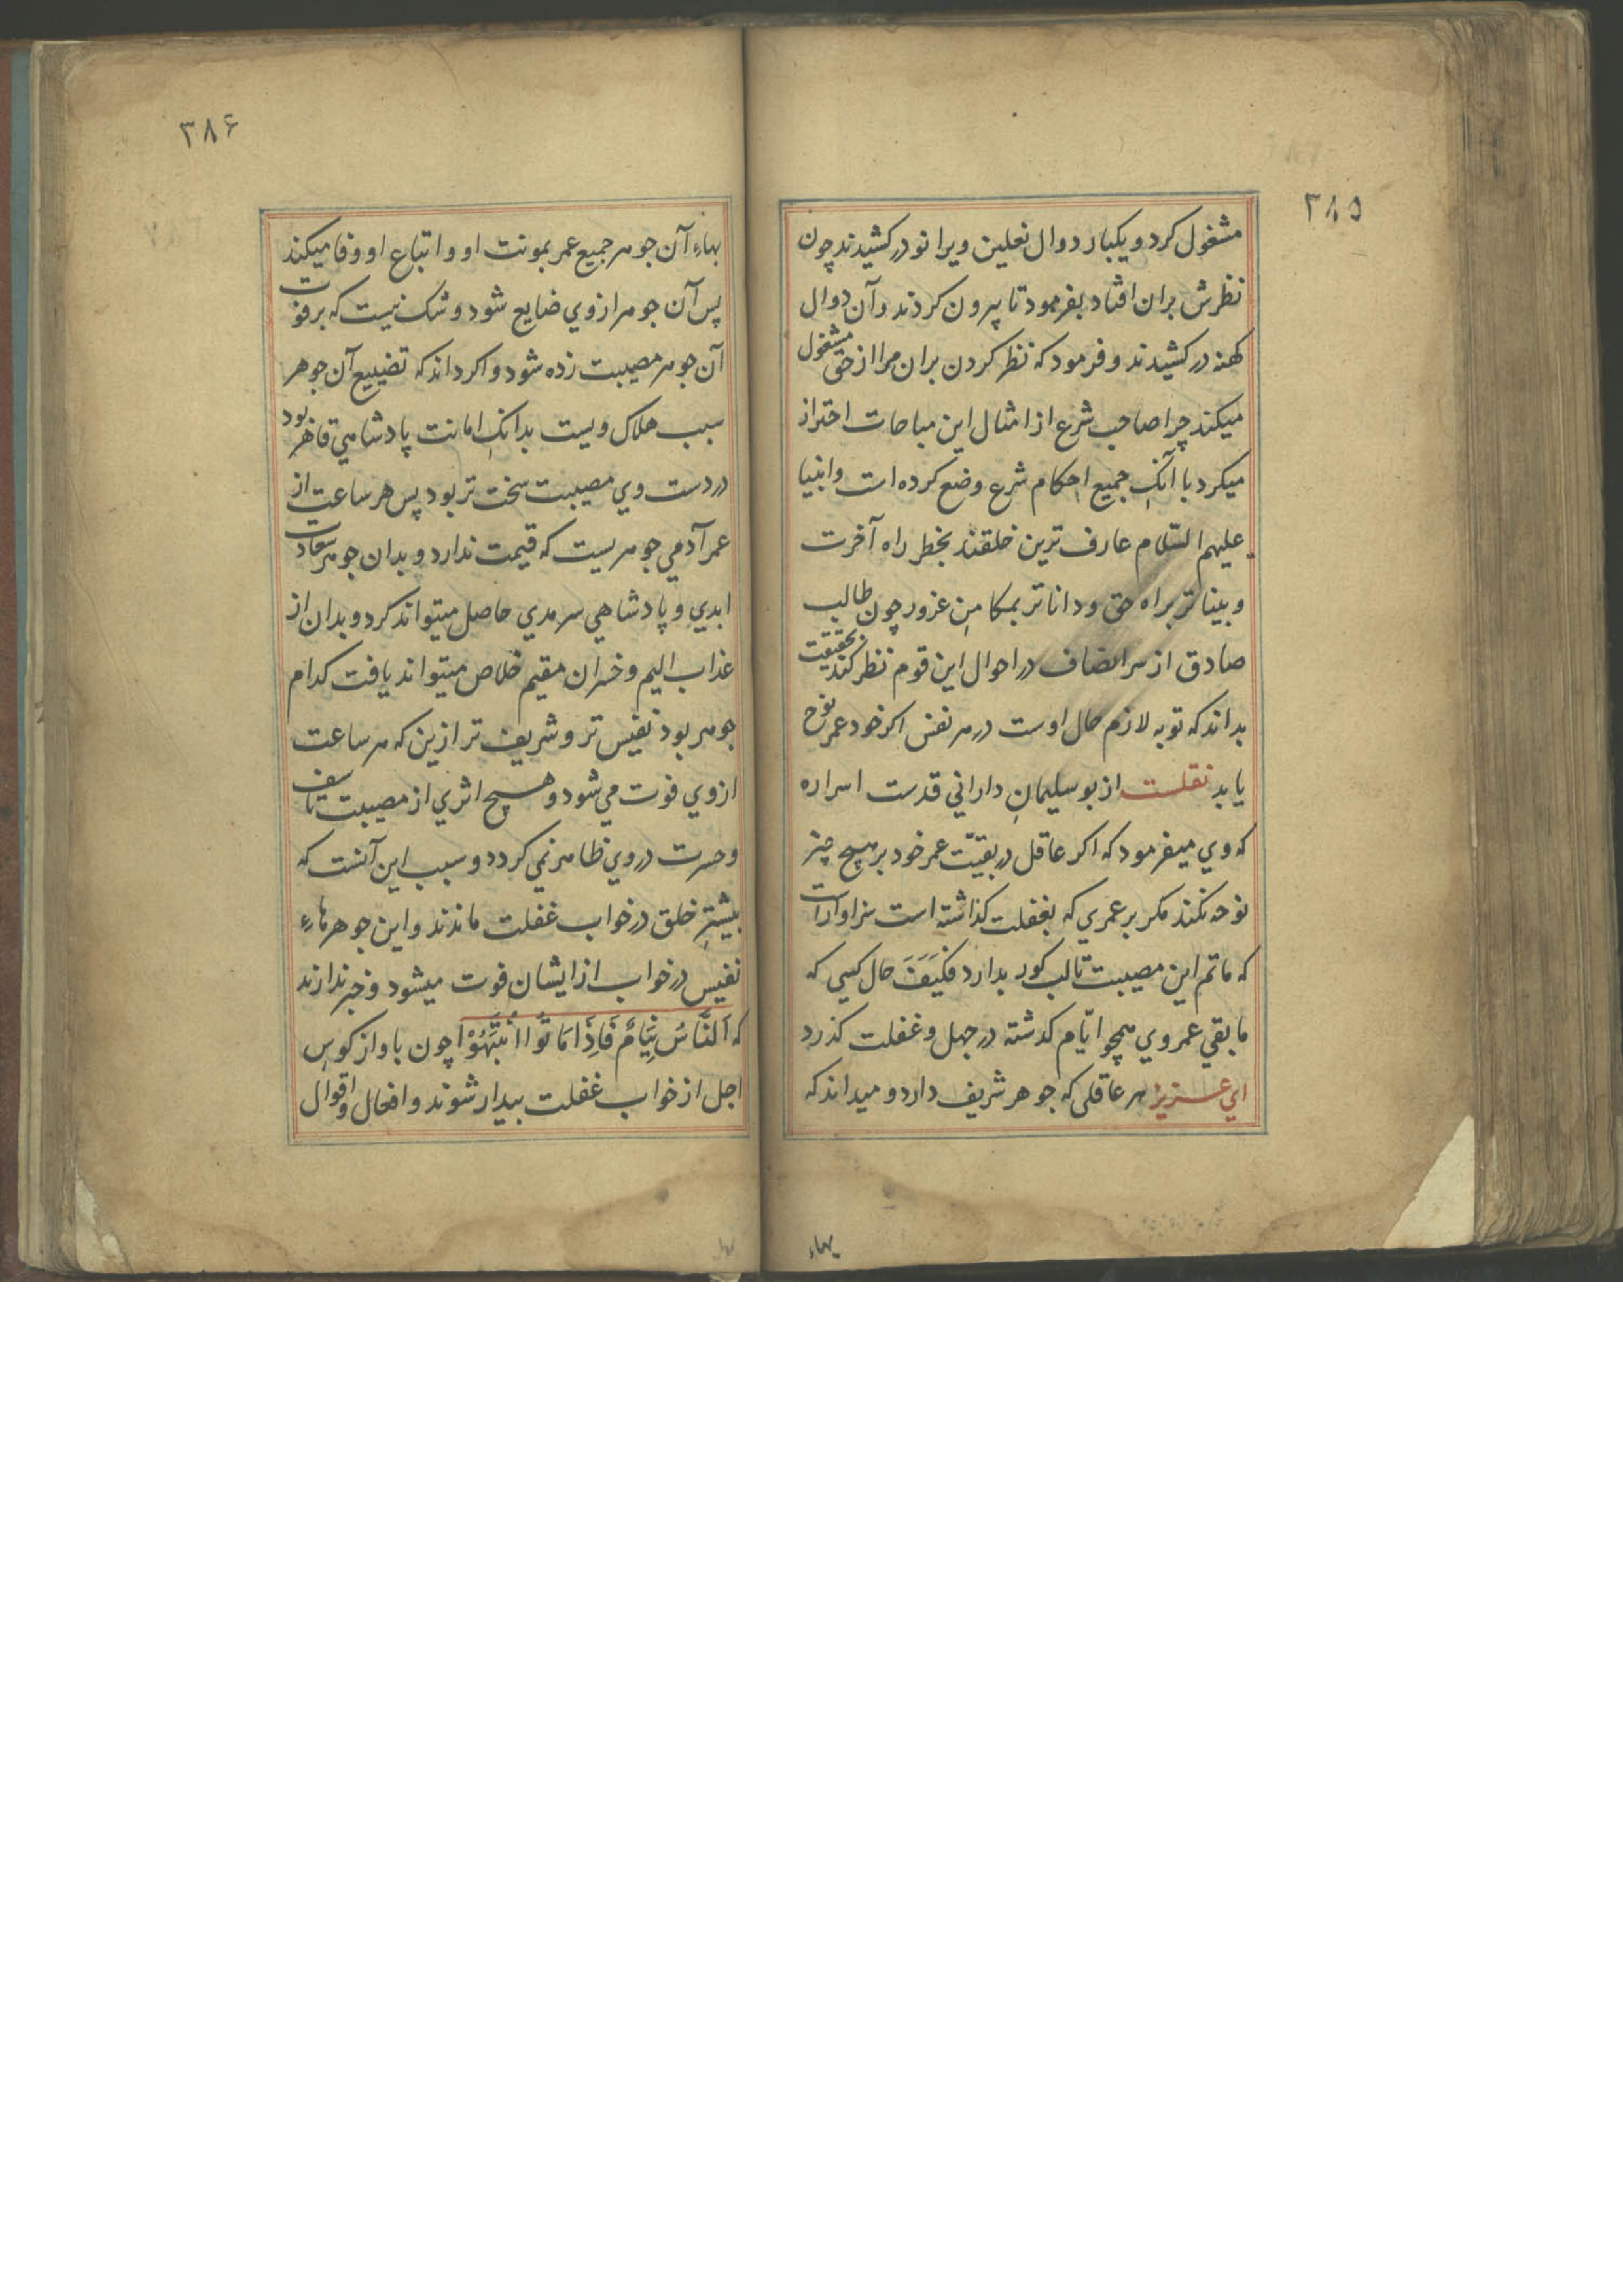 ۳۸۵
مشغول کرد و یکبار دوال نعلین ویرا نو درکشیدند چون
نظرش بران افتاد بفرمود تا بیرون کردند و آن دوال
کهنه درکشیدند و فرمود که نظر کردن بران مرا از حق مشغول
میکند چرا صاحب شرع از امثال این مباحات احتراز
میکرد با آنک جمیع احکام شرع وضع کرده است و انبیا
علیهم السّلام عارف ترین خلقند بخطر راه آخرت
و بینا تر براه حق و دانا تر بمکامن غرور چون طالب
صادق از سر انصاف در احوال این قوم نظر کند بحقیقت
بداند که توبه لازم حال اوست در هر نفس اکر خود عمر نوح
یابد نقلست از بو سلیمان دارانی قدست اسراره
که وی میفرمود که اکر عاقل در بقیّت عمر خود بر هیچ چیز
نوحه نکند مکر بر عمری که بغفلت کذاشته است سزاوار آنست
که ماتم این مصیبت تا لب کور بدارد فکیف حال کسی که
ما بقی عمر وی همچو ایّام کذشته در جهل و غفلت کذرد
ای عزیز هر عاقلی که جوهر شریف دارد و میداند که
بهاء
۳۸۶
بهاء آن جوهر جمیع عمر بمونت او و اتباع او وفا میکند
پس آن جوهر از وی ضایع شود و شک نیست که بر فوت
آن جوهر مصیبت زده شود و اکر داند که تضییع آن جوهر
سبب هلاک ویست بدانک امانت پادشاهی قاهر بود
در دست وی مصیبت سخت تر بود پس هر ساعت از
عمر آدمی جوهریست که قیمت ندارد و بدان جوهر سعادت
ابدی و پادشاهی سرمدی حاصل میتواند کرد و بدان از
عذاب الیم و خسران مقیم خلاص میتواند یافت کدام
جوهر بود نفیس تر و شریف تر ازین که هر ساعت
از وی فوت می شود و هیچ اثری از مصیبت تاسف
و حسرت در وی ظاهر نمی کردد و سبب این آنست که
بیشتر خلق در خواب غفلت ماندند و این جوهرهاء
نفیس در خواب از ایشان فوت میشود و خبر ندارند
که اَلنَّاسُ نِیَامٌ فَاِذَا مَاتُوا اُنتَبَهُوْا چون باواز کوس
اجل از خواب غفلت بیدار شوند و افعال و اقوال